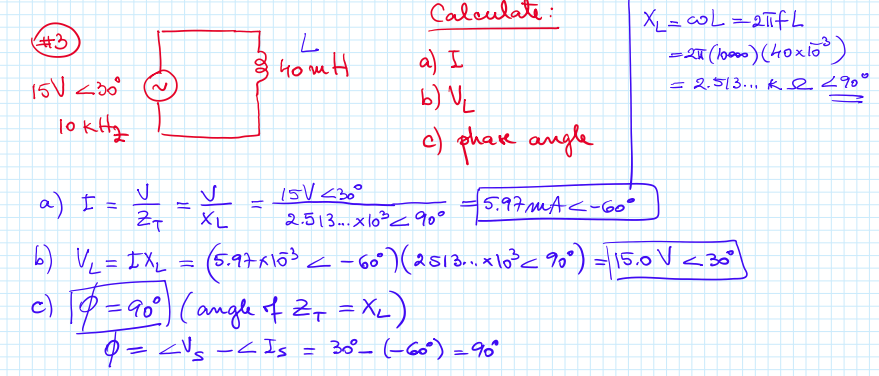 #3
15V <30°
10 kHz
L
40 mH
Calculate:
a) I
b) V_L
c) phase angle
X_L = ωL = 2πfL
= 2π(10000)(40×10⁻³)
= 2.513... k Ω <90°
a) I = V/Z_T = V/X_L = 15V <30° / 2.513...×10³ < 90° = 5.97 mA < -60°
b) V_L = I X_L = (5.97×10⁻³ < -60°)(2513...×10³ < 90°) = 15.0 V < 30°
c) φ = 90° (angle of Z_T = X_L)
φ = <V_s - < I_s = 30° - (-60°) = 90°